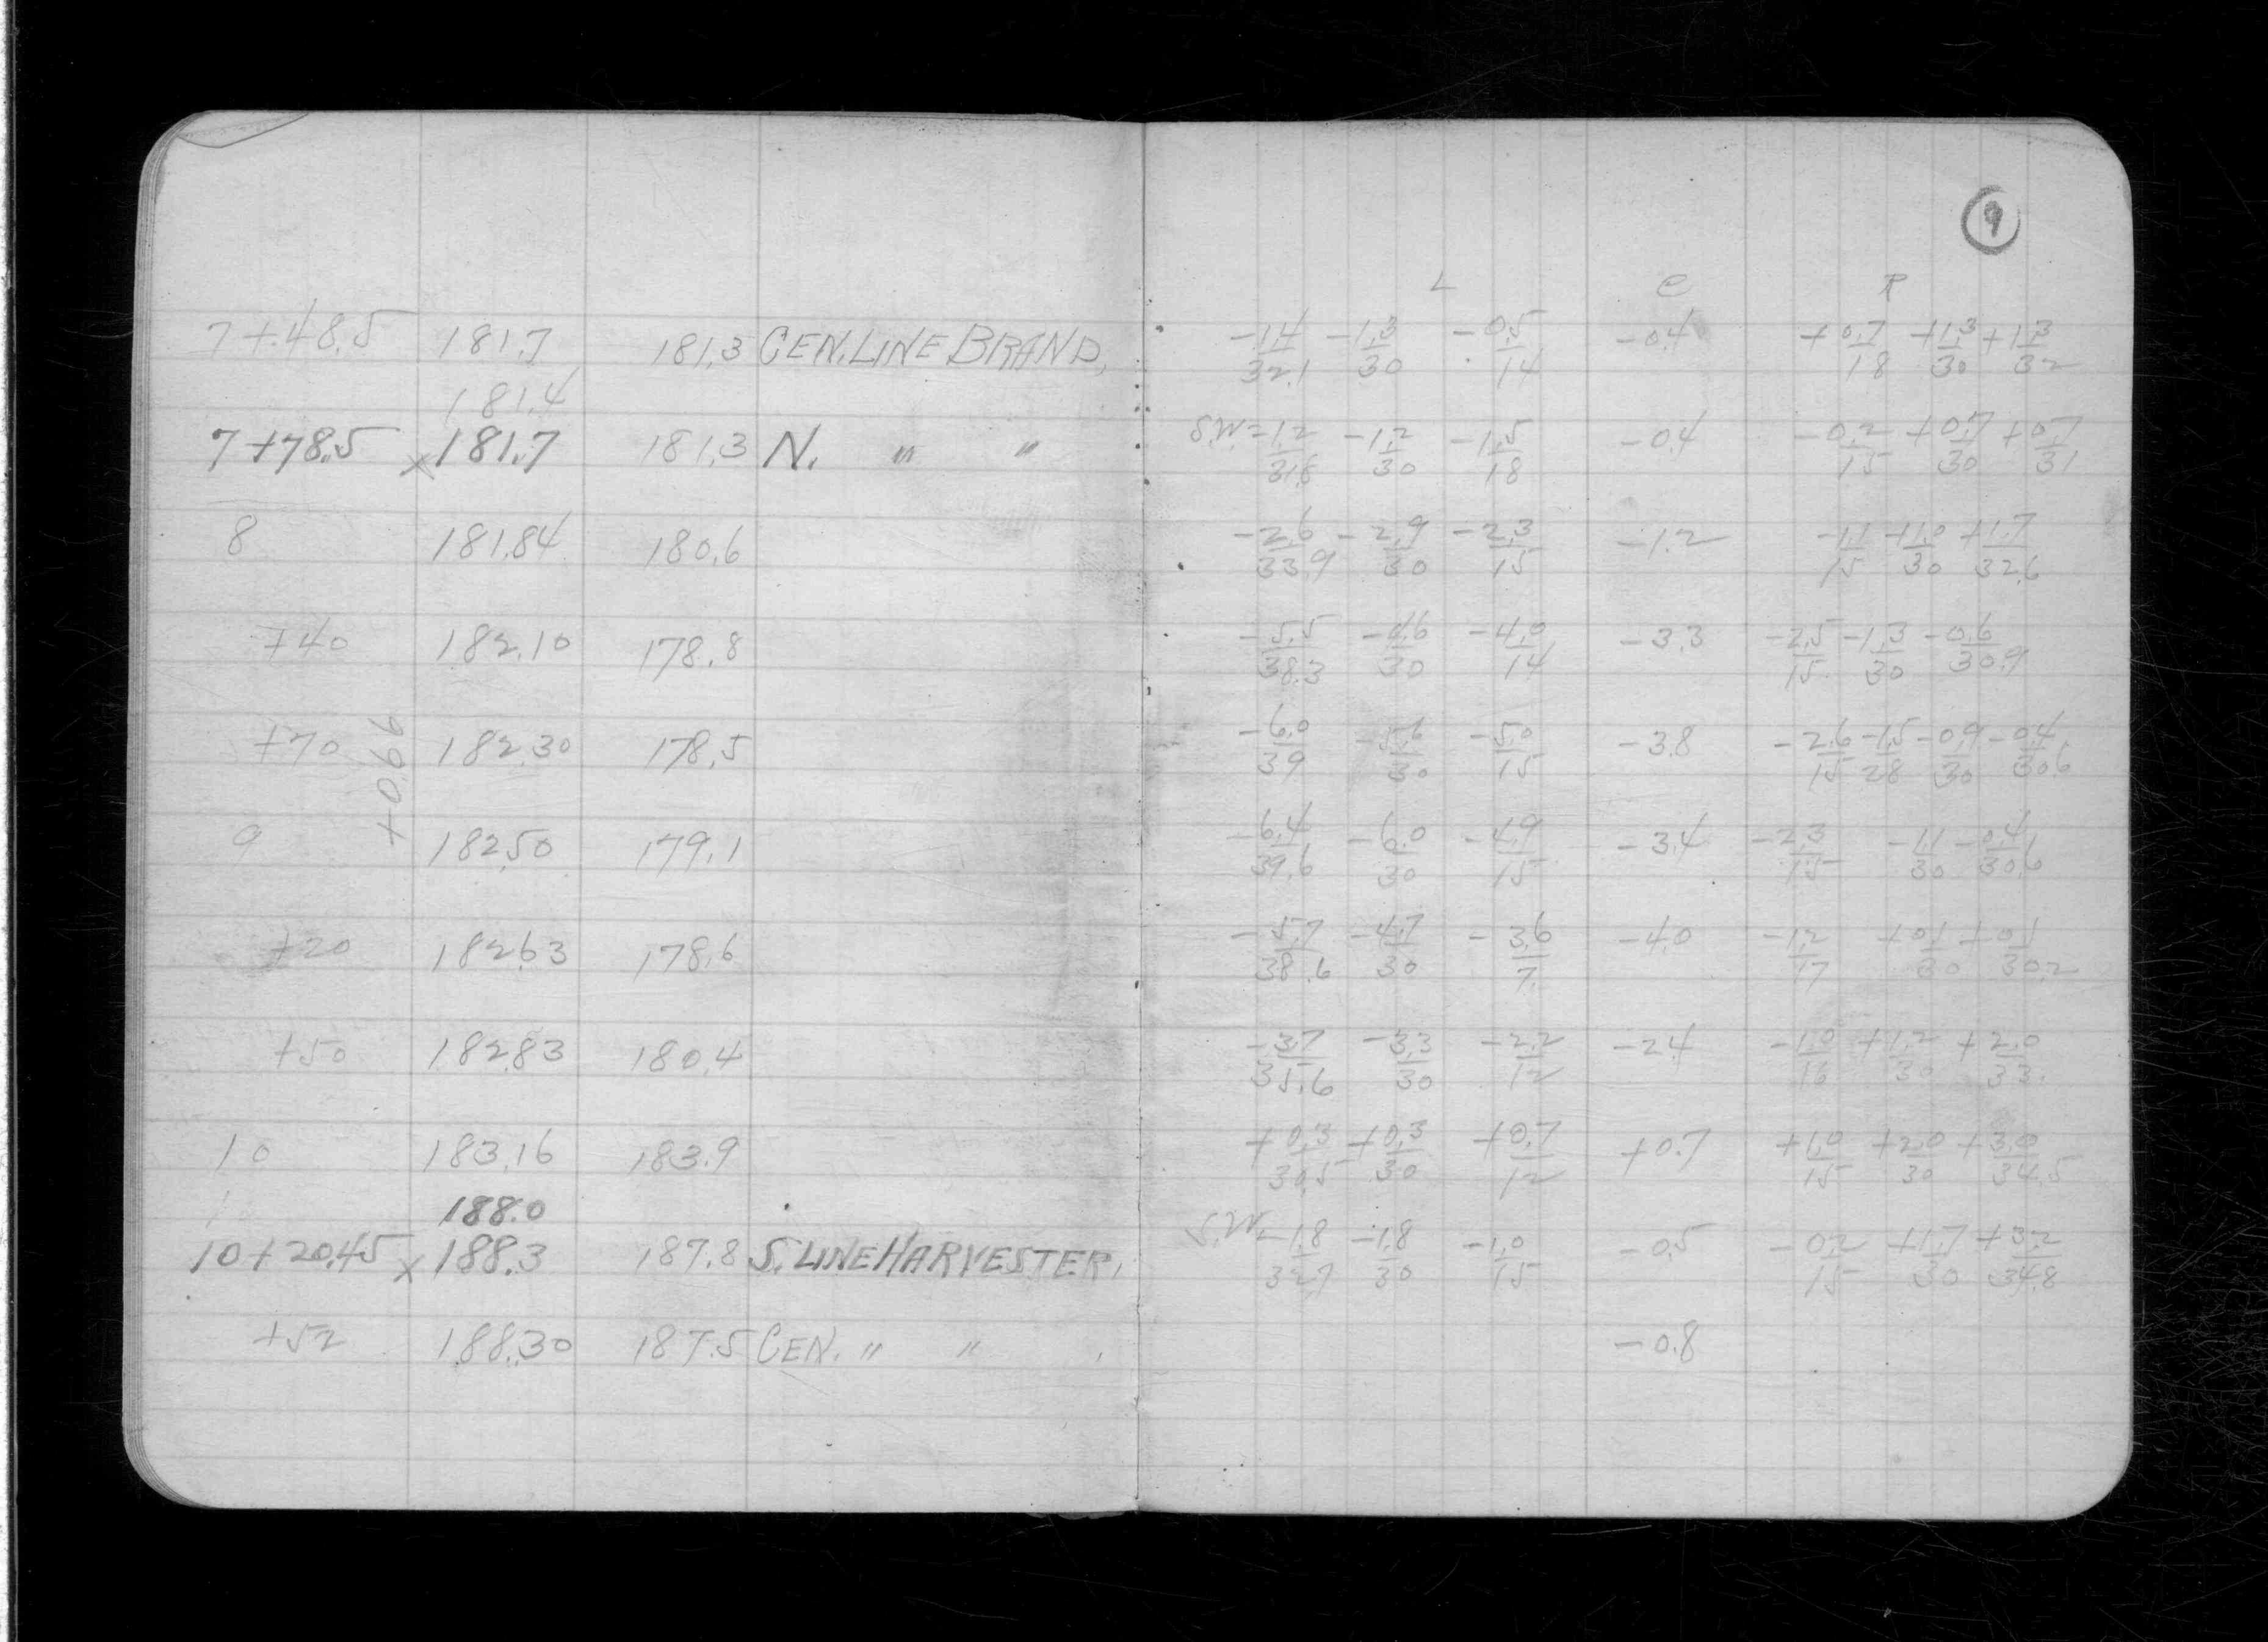 9
L C R
7+48.5 181.7 181.3 CEN. LINE BRAND, -1.4/32.1 -1.3/30 -0.5/14 -0.4 +0.7/18 +1.3/30 +1.3/32
181.4
7+78.5 x 181.7 181.3 N. " " S.W. -1.2/31.8 -1.2/30 -1.5/18 -0.4 -0.2/15 +0.7/30 +0.7/31
8 181.84 180.6 -2.6/33.9 -2.9/30 -2.3/15 -1.2 -1.1/15 +1.0/30 +1.7/32.6
+40 182.10 178.8 -5.5/38.3 -4.6/30 -4.0/14 -3.3 -2.5/15 -1.3/30 -0.6/30.9
+70 182.30 178.5 -6.0/39 -5.6/30 -5.0/15 -3.8 -2.6/15 -1.5/28 -0.9/30 -0.4/30.6
+0.66
9 182.50 179.1 -6.4/39.6 -6.0/30 -4.9/15 -3.4 -2.3/15 -1.1/30 -0.4/30.6
+20 182.63 178.6 -5.7/38.6 -4.7/30 -3.6/7 -4.0 -1.2/17 +0.1/30 +0.1/30.2
+50 182.83 180.4 -3.7/35.6 -3.3/30 -2.2/12 -2.4 -1.0/16 +1.2/30 +2.0/33
10 183.16 183.9 +0.3/30.5 +0.3/30 +0.7/12 +0.7 +1.0/15 +2.0/30 +3.0/34.5
188.0
10+20.45 x 188.3 187.8 S. LINE HARVESTER, S.W. -1.8/32.7 -1.8/30 -1.0/15 -0.5 -0.2/15 +1.7/30 +3.2/34.8
+52 188.30 187.5 CEN. " " -0.8